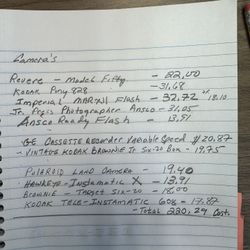 Camera's
Revere - Model Fifty - 22.00
KODAK Pony 828 - 31.68
Imperial MARK XII Flash - 32.72 18.10
Jr. Press Photographer Ansco - 31.05
Ansco Ready Flash - 13.91
GE CASSETTE RECORDER VARIABLE SPEED $20.87
- VINTAGE KODAK BROWNIE Jr SIX-20 BOX - 19.75
POLAROID LAND CAMERA - 19.40
HAWKEYE - INSTAMATIC X - 13.91
BROWNIE - TARGET SIX-20 - 18.00
KODAK TELE-INSTAMATIC 608 - 17.87
Total 220.24 Cost